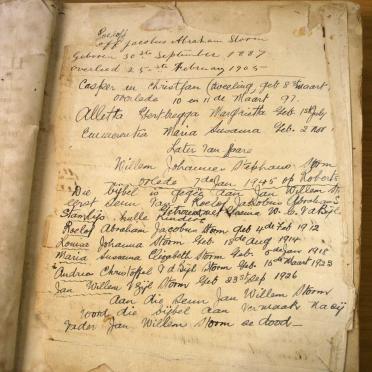 Roelof
off Jacobus Abraham Storm
Geboren 30ste September 1887
overlied 25-ste February 1905-
Casper en Christjan geb 8ste Maart
overlede 10 en 11 de Maart 97.
Alletta Gertbregga Margrieta Geb. 1st July
Maria Susanna Geb. 2 Nov
Later Van Jaare
Willem Johannes Stephanus Storm
overlede 7de Jan 1945 op Roberts
Die bijbel is gegee aan Jan Willem St
eerst seun van Roelof Jakobus Abraham S
Storm Getroud met W. C. V d Byl
hulle kinders
Roelof Abraham Jacobus Storm geb 4de Feb 1912
Louisa Johanna Storm Geb 18de Aug 1914
Maria Susanna Elizabeth Storm Geb 5de Jan 1919
Andries Christoffel V d Byl Storm Geb 15de Maart 1923
Jan Willem V Byl Storm Geb 23ste Sep 1926
Aan die Seun Jan Willem Storm
word die bijbel aan vermaak na sy
vader Jan Willem Storm se dood-